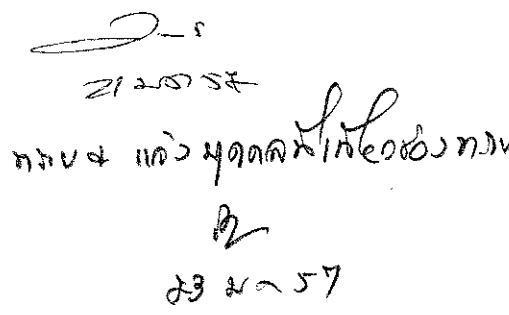 21 มค 57
ทราบ & แจ้ง บุคคลที่เกี่ยวข้อง ทราบ
23 มค 57